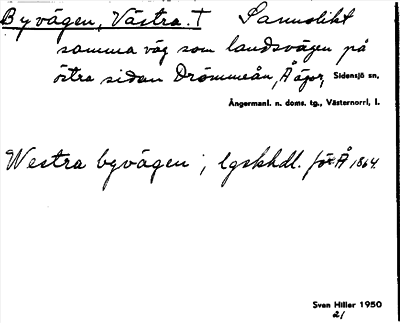 Byvägen, Västra. † Sannolikt
samma väg som landsvägen på
östra sidan Drömmeån, Å ägor, Sidensjö sn,
Ångermanl. n. doms. tg., Västernorrl, l.
Westra byvägen ; lgskhdl. för Å 1864.
Sven Hiller 1950
21